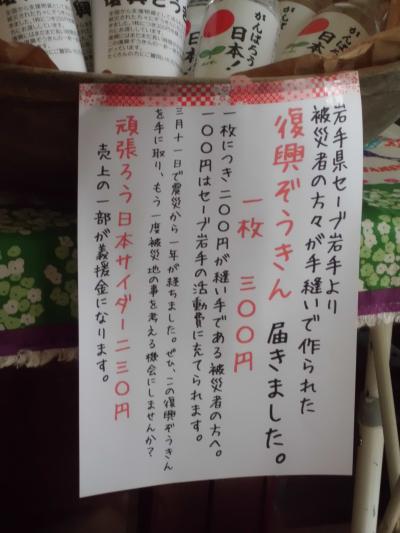 がんばろう
日本!
がんばろう
日本!
復興ぞうきん
岩手県セーブ岩手より
被災者の方々が手縫いで作られた
復興ぞうきん 届きました。
一枚 三〇〇円
一枚につき二〇〇円が縫い手である被災者の方へ。
一〇〇円はセーブ岩手の活動費に充てられます。
三月十一日で震災から一年が経ちました。ぜひ、この復興ぞうきん
を手に取り、もう一度被災地の事を考える機会にしませんか?
頑張ろう日本サイダー二三〇円
売上の一部が義援金になります。